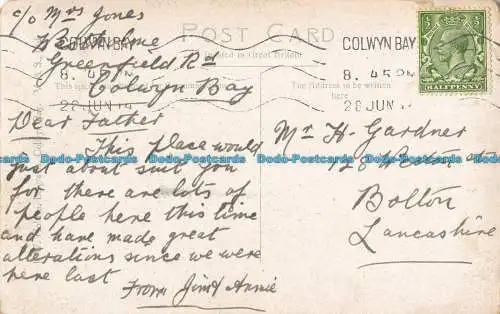 c/o Mrs Jones
POST CARD
Greenfield Rd
Printed in Great Britain
Colwyn Bay
COLWYN BAY
8. 45 PM
28 JUN 1
COLWYN BAY
8. 45 PM
28 JUN 1
The Address to be written
here
HALFPENNY
Dear Father
This place would
just about suit you
for there are lots of
people here this time
and have made great
alterations since we were
here last
From Jim & Annie
Mr H. Gardner
128 St
Bolton
Lancashire
Dodo-Postcards Dodo-Postcards Dodo-Postcards Dodo-Postcards Dodo-Postcards